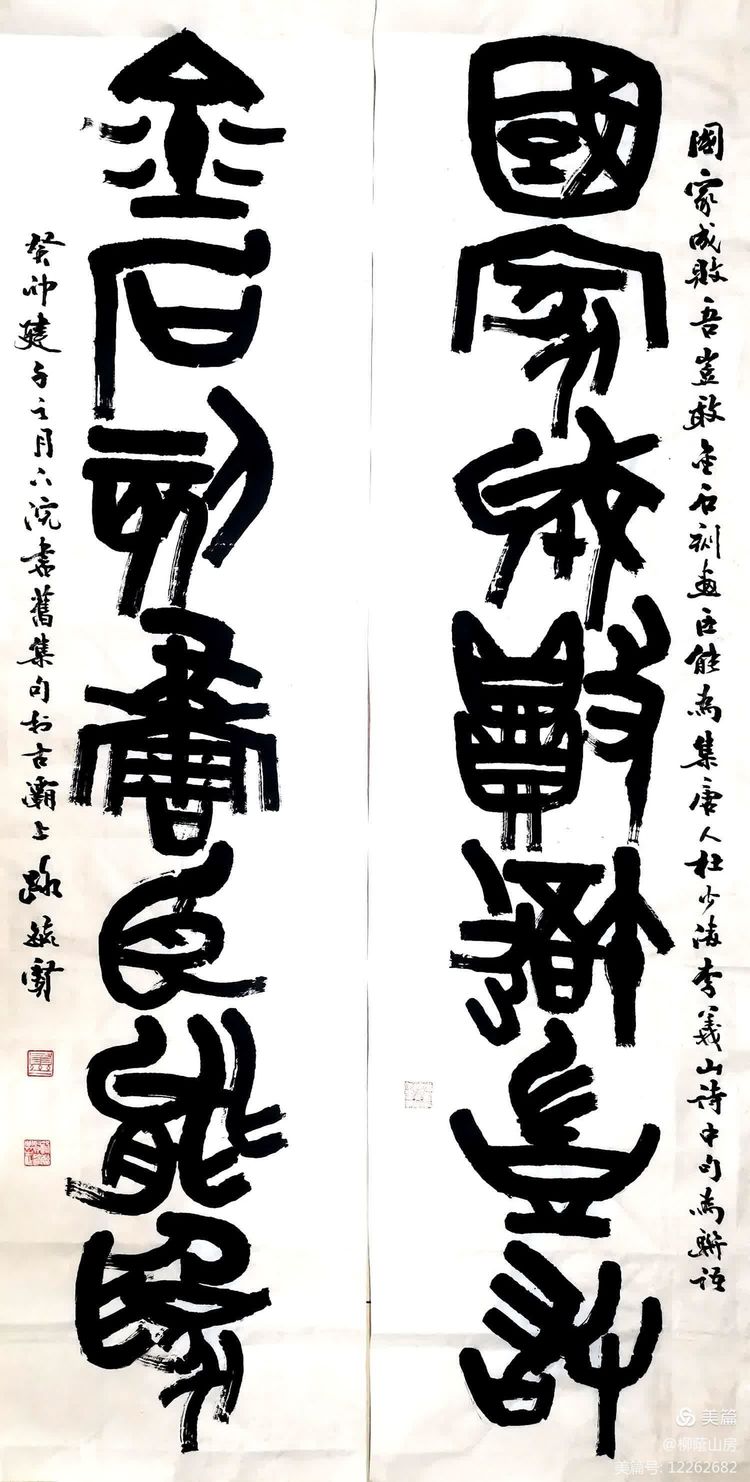 國家成敗吾豈敢金石刻畫臣能為集唐人杜少陵李義山詩中句為聯語
國家成敗吾豈敢
金石刻畫臣能為
癸卯建子之月下浣書舊集句於古灞上路毓賢
美篇
@柳蔭山房
美篇号: 12262682